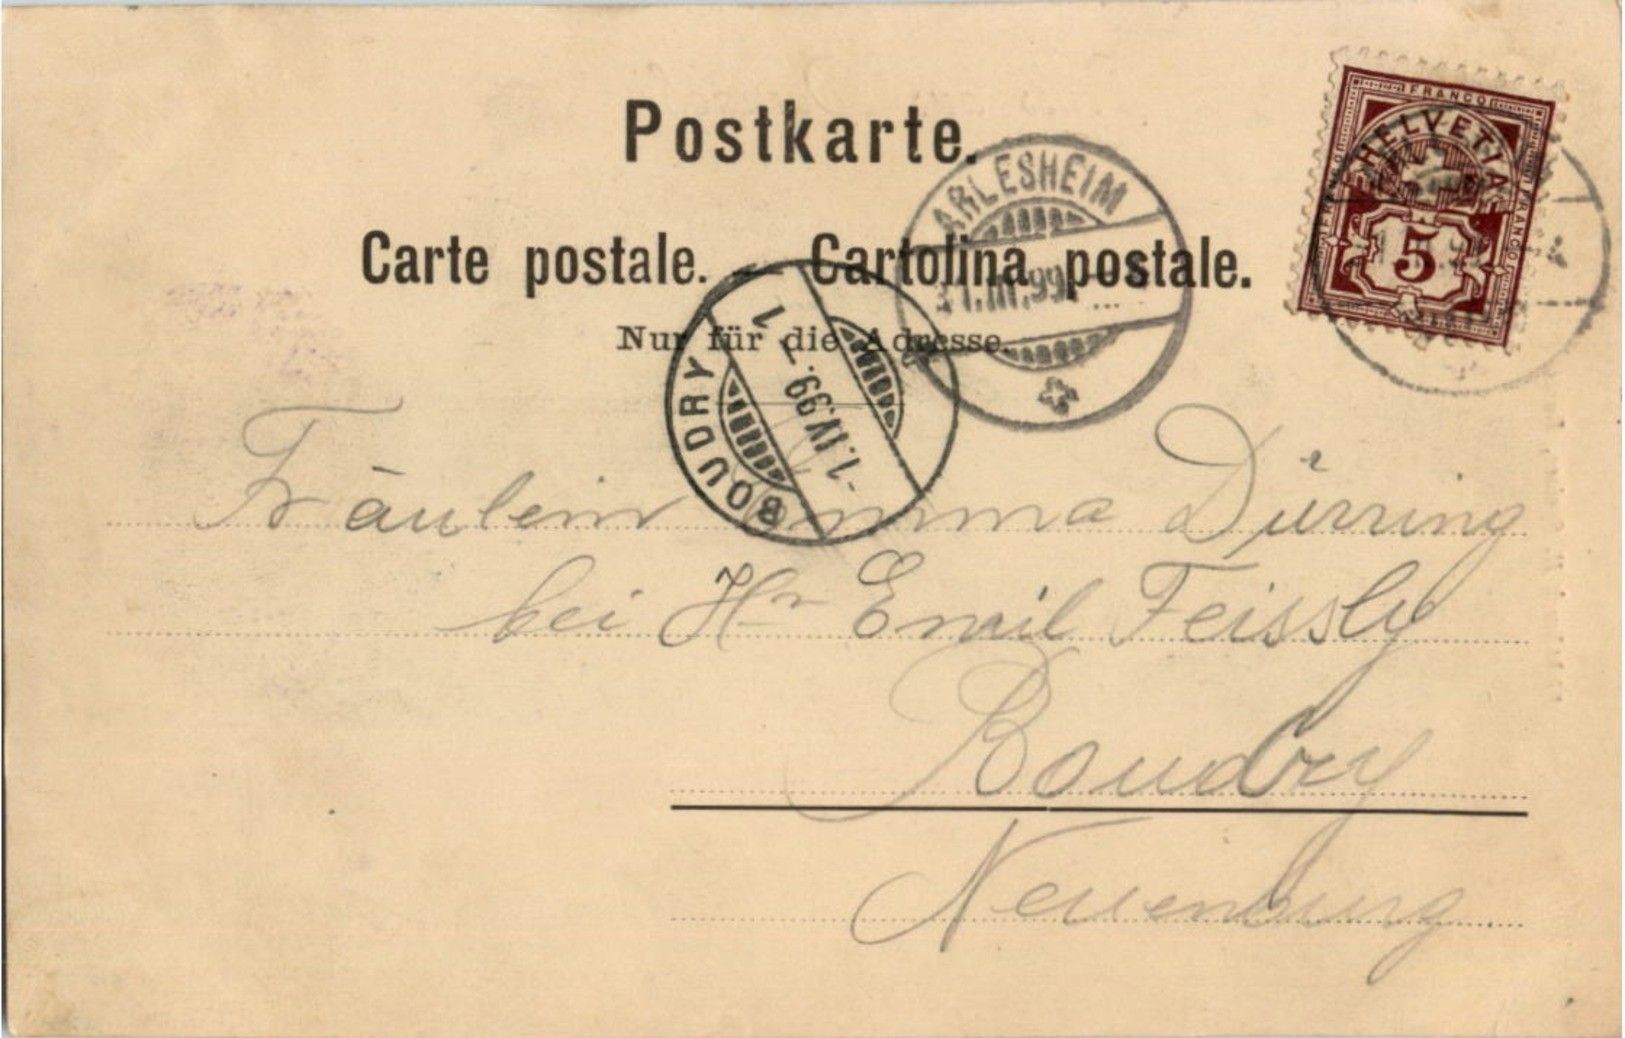 Postkarte.
Carte postale. — Cartolina postale.
Nur für die Adresse.
ARLESHEIM
31.III.99
BOUDRY
-1.IV.99.-7
1
FRANCO
HELVETIA
FRANCO
FRANCO
5
Fräulein Emma Dürring
bei Hr Emil Feissly
Boudry
Neuenburg.